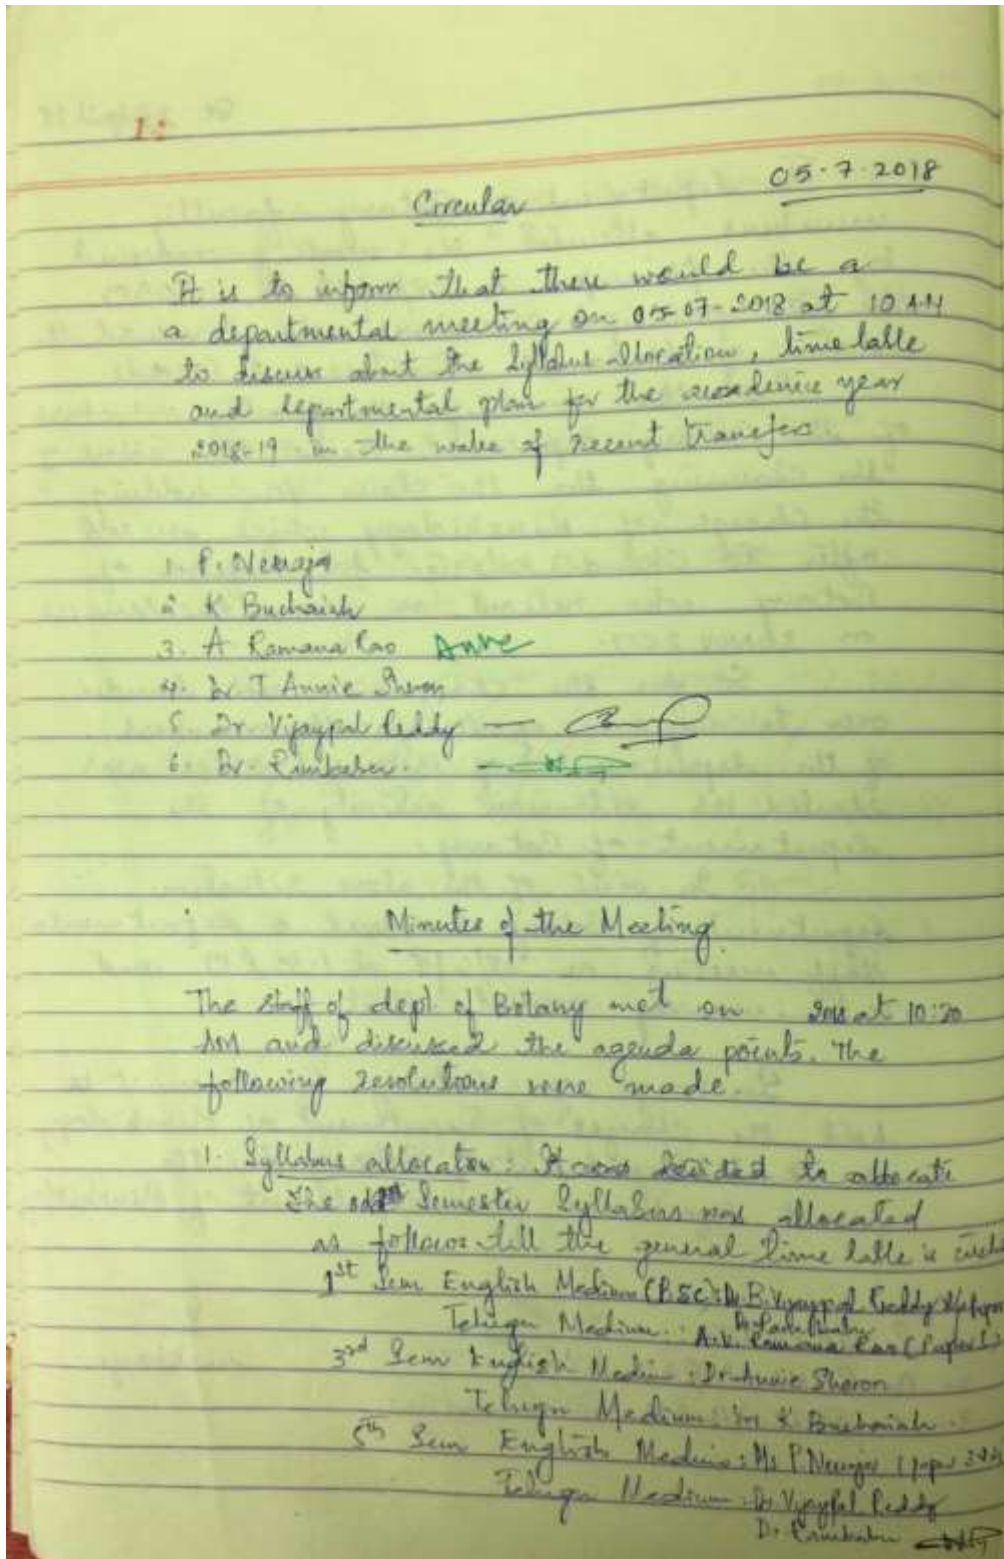 1:
05-7-2018
Circular
It is to inform that there would be a
a departmental meeting on 05-07-2018 at 10 AM
to discuss about the Syllabus allocation, time table
and departmental plan for the academic year
2018-19 in the wake of recent transfers.
1. P. Neeraja
2. K Buchaiah
3. A Ramana Rao
4. Dr T Annie Sheron
5. Dr. Vijaypal Reddy —
6. Dr. Rambabu.
Minutes of the Meeting
The staff of dept. of Botany met on 2018 at 10:20
AM and discussed the agenda points. The
following resolutions were made.
1. Syllabus allocation: It was decided to allocate
The Semester Syllabus was allocated
as follows till the general time table is
1st Sem English Medium (BSC): Dr B. Vijaypal Reddy
Telugu Medium: Dr Rambabu
A.V. Ramana Rao (Paper 1)
3rd Sem English Medium: Dr. Annie Sheron
Telugu Medium: K. Buchaiah.
5th Sem English Medium: Ms P Neeraja (paper
Telugu Medium: Dr Vijaypal Reddy
Dr. Rambabu